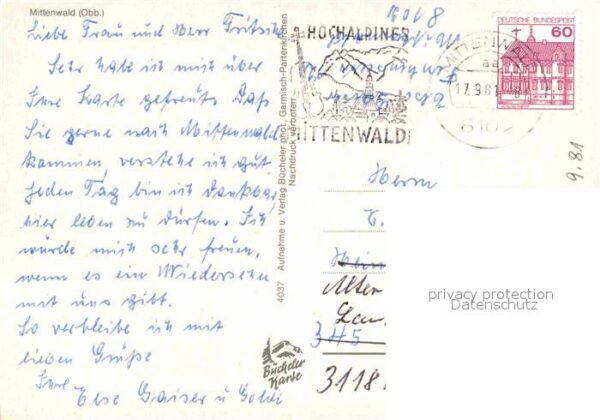 Mittenwald (Obb.)
Liebe Frau und Herr Fritsche
Sehr habe ich mich über
Ihre Karte gefreut. Daß
Sie gerne nach Mittenwald
kommen, verstehe ich gut
Jeden Tag bin ich dankbar
hier leben zu dürfen. Ich
würde mich sehr freuen,
wenn es ein Wiedersehn
mit uns gibt.
So verbleibe ich mit
lieben Grüße
Ihre
Else Gaiser u.
4037 Aufnahme u. Verlag Bücheler phot. Garmisch-Partenkirchen
Nachdruck verboten
Bücheler
Karte
HOCHALPINES
MITTENWALD
8102
MITTENWALD
aa
17.9.81
8102
DEUTSCHE BUNDESPOST
60
9.81
Herrn
345
3118
privacy protection
Datenschutz